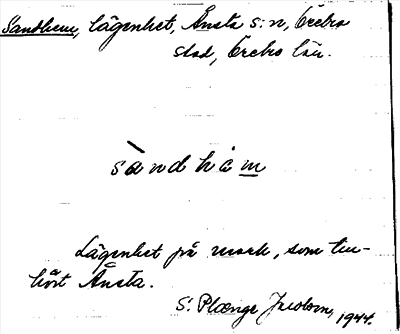 Sandhem, lägenhet, Ånsta s:n, Örebro
stad, Örebro län.
sàndhåm
Lägenhet på mark, som till-
hört Ånsta.
S. Plænge Jacobson, 1944.